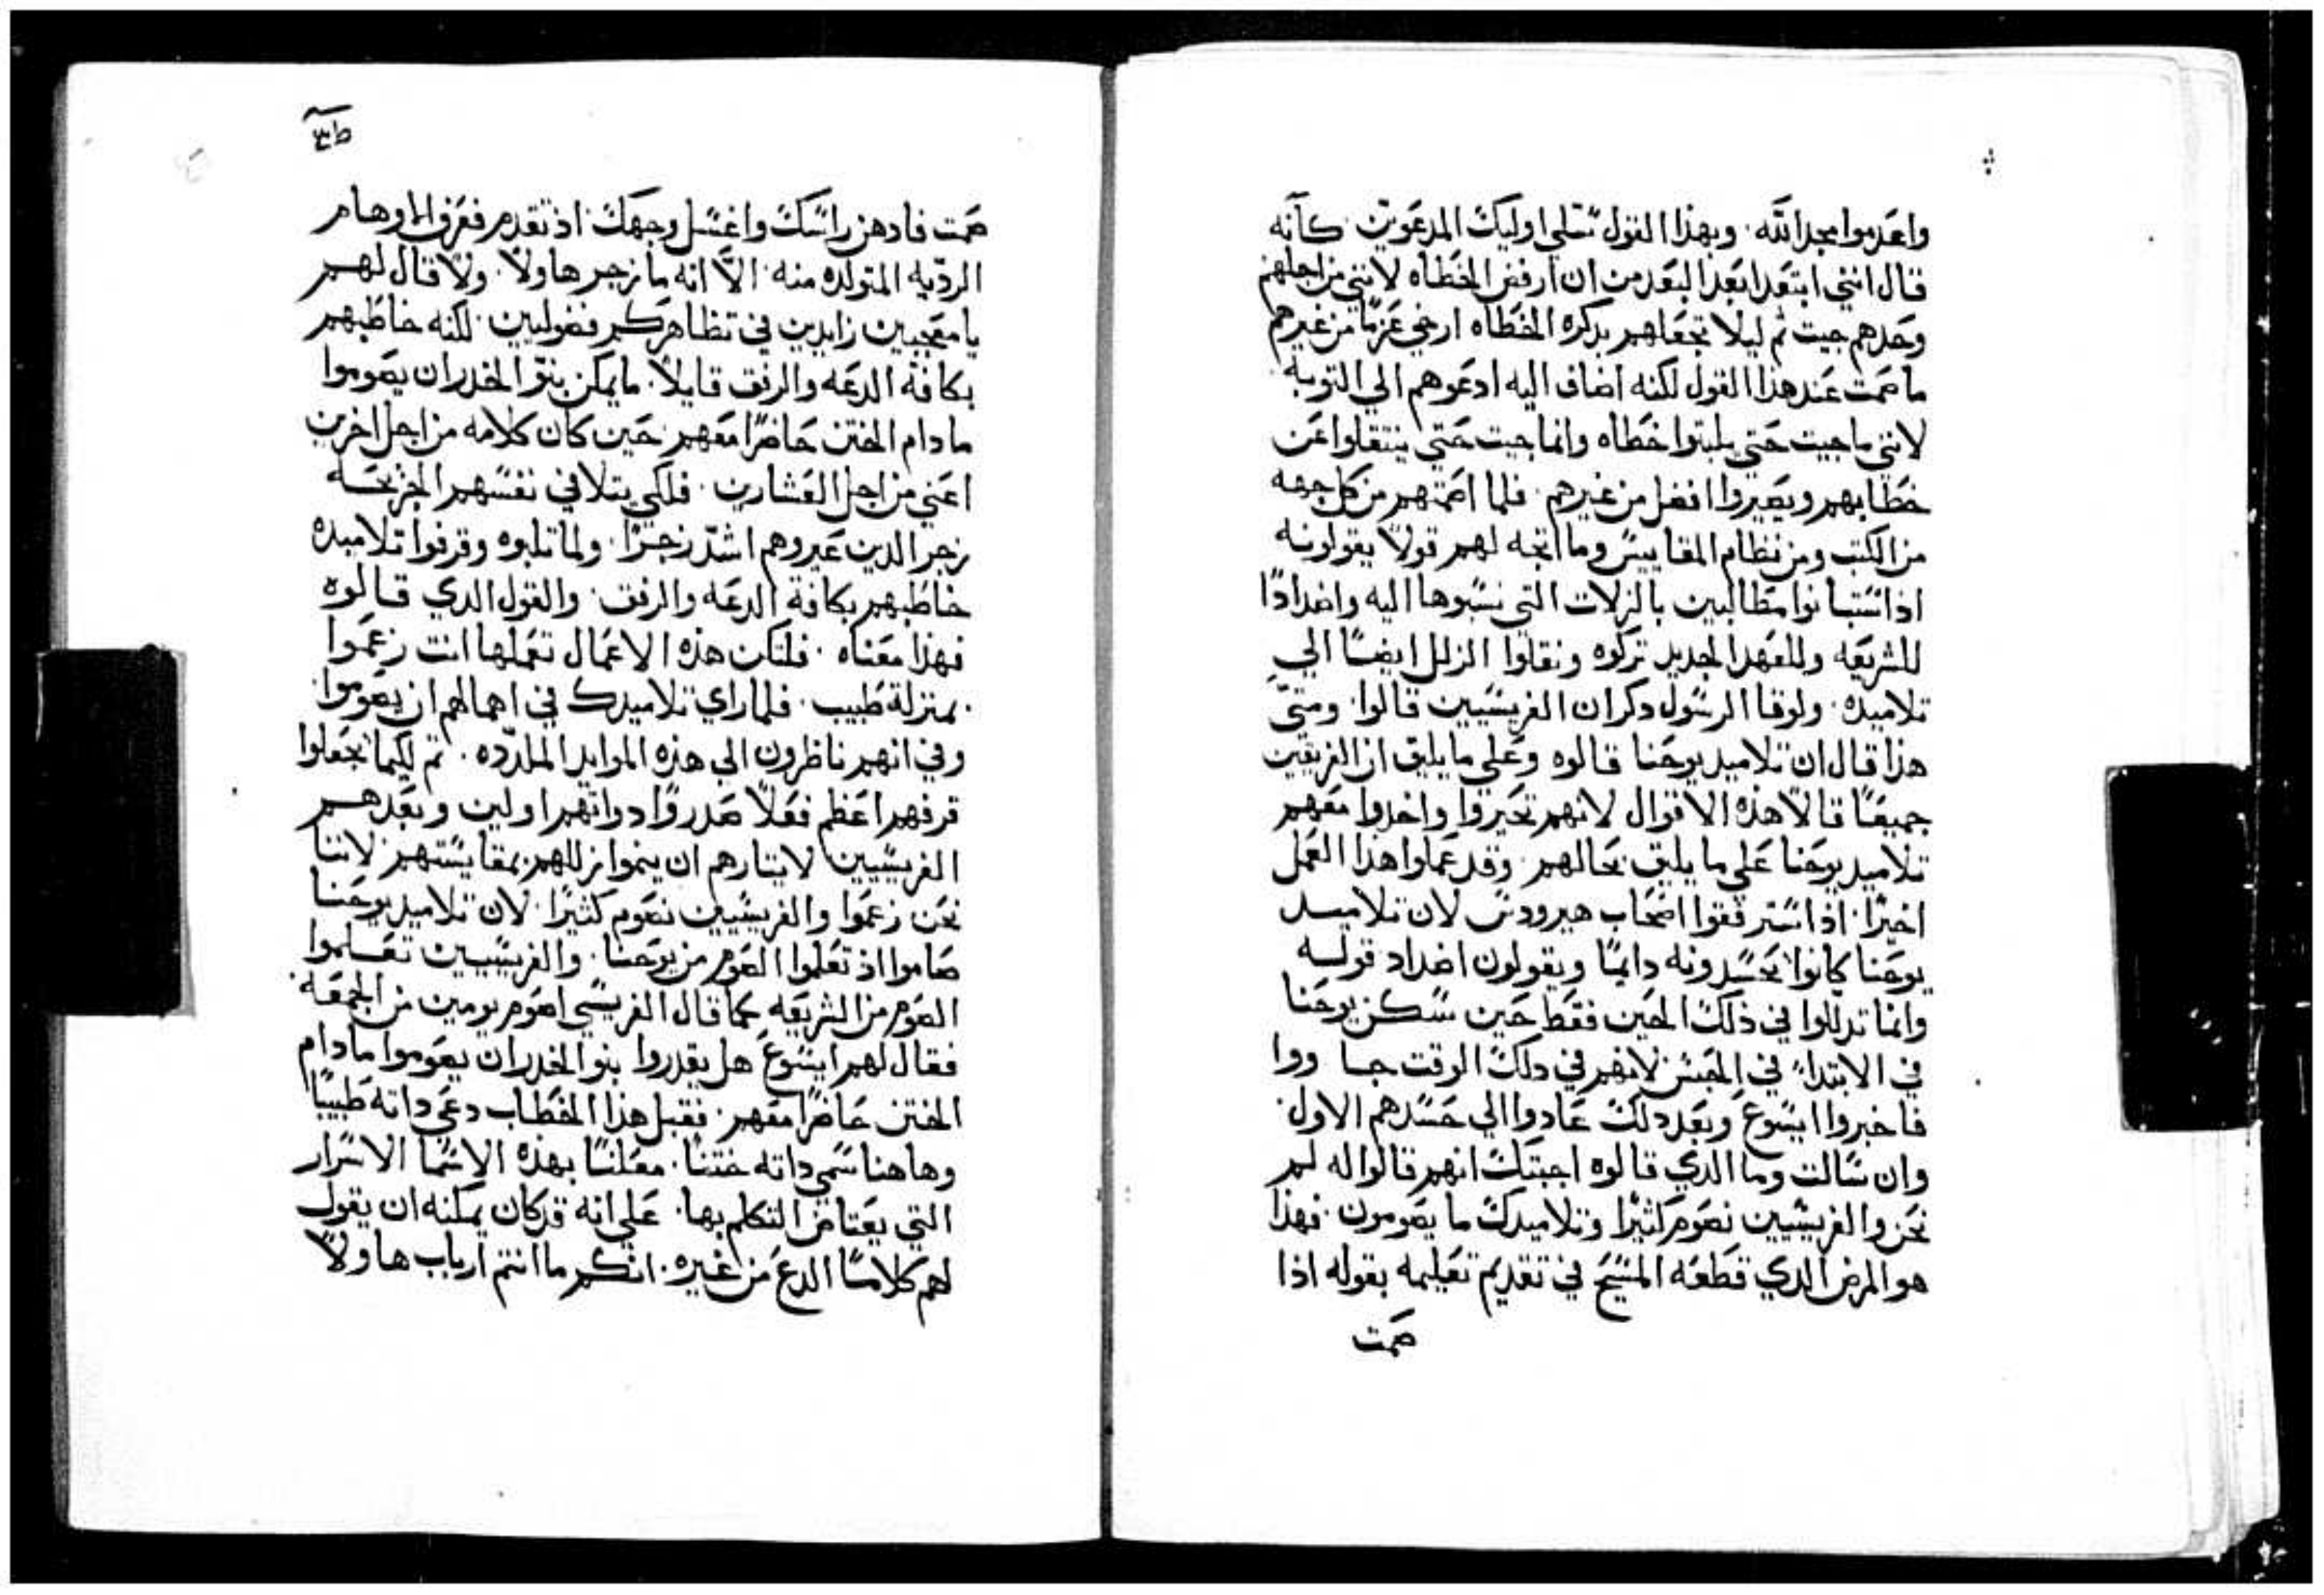 واعدموا مجد الله. وبهذا القول تسلي اوليك المدعوين. كانه
قال انني ابتعد ابعد البعد من ان ارفض الخطاه لانني من اجلهم
وحدهم جيت ثم ليلا تجعلهم بذكره الخطاه ارخي عزمًا من غيرهم
ما صمت عند هذا القول لكنه اضاف اليه ادعوهم الي التوبه.
لانني ما جيت حتي يلبثوا خطاه وانما جيت حتي ينتقلوا عن
خطايهم ويصيروا افضل من غيرهم. فلما اصمتهم من كل جهه
من الكتب ومن نظام المقاييس وما اتجه لهم قولاً يقولونه
اذ استبانوا مطالبين بالزلات التي نسبوها اليه واضدادًا
للشريعه وللعهد الجديد تركوه ونقلوا الزلل ايضًا الي
تلاميده. ولوقا الرسول دكر ان الفريسيين قالوا. ومتيّ
هذا قال ان تلاميد يوحنا قالوه وعلي ما يليق ان الفريقين
جميعًا قالا هذه الاقوال لانهم تحيروا واخدوا معهم
تلاميد يوحنا علي ما يليق بحالهم. وقد عملوا هذا العمل
اخيرًا. اذ استرفقوا اصحاب هيرودس لان تلاميد
يوحنا كانوا يحسدونه دايمًا ويقولون اضداد قوله
وانما تدللوا في ذلك الحين فقط حين سكن يوحنا
في الابتداء في الحبس لانهم في دلك الوقت جا ووا
فاخبروا ايسوع وبعد دلك عادوا الي حسدهم الاول.
وان سالت وما الدي قالوه اجبتك انهم قالوا له لم
نحن والفريسيين نصوم كثيرًا وتلاميدك ما يصومون. فهذا
هو المرض الدي قطعه المسيح في تقديم تعليمه بقوله اذا
صمت
صمت فادهن راسك واغسل وجهك. اذ تقدم فعرف الاوهام
الرديه المتولده منه. الاّ انه ما زجر هاولاً. ولا قال لهم
يا معجبين زايدين في تظاهركم فضوليين. لكنه خاطبهم
بكافة الدعه والرفق قايلاً. ما يمكن بنو الخدر ان يصوموا
ما دام الختن حاضرًا معهم. حين كان كلامه من اجل اخرين
اعني من اجل العشارين. فلكي يتلافي نفسهم الجريحه
زجر الدين عيروهم اشدّ زجرًا. ولما تلبوه وقرفوا تلاميده
خاطبهم بكافة الدعه والرفق. والقول الدي قالوه
فهذا معناه. فلتكن هذه الاعمال تعملها انت زعموا
بمنزلة طبيب. فلما راي تلاميدك في اهمالهم ان يصوموا.
وفي انهم ناظرون الي هذه الموايد الملدّده. ثم لكيما يجعلوا
قرفهم اعظم فعلاً صدروا دواتهم اولين وبعدهم
الفريسيين لايتارهم ان ينموا زللهم بمقايستهم لاننا
نحن زعموا والفريسيين نصوم كثيرًا. لان تلاميد يوحنا
صاموا اذ تعلموا الصوم من يوحنا. والفريسيين تعلموا
الصوم من الشريعه كما قال الفريسي اصوم يومين من الجمعه.
فقال لهم ايسوع هل يقدروا بنو الخدر ان يصوموا ما دام
الختن حاضرًا معهم. فقبل هذا الخطاب دعي داته طبيبًا
وهاهنا سمي داته ختنًا. معلنًا بهذه الاسما الاسرار
التي يعتاض التكلم بها. علي انه قد كان يمكنه ان يقول
لهم كلامًا الدع من غيره. انكم ما انتم ارباب هاولاً